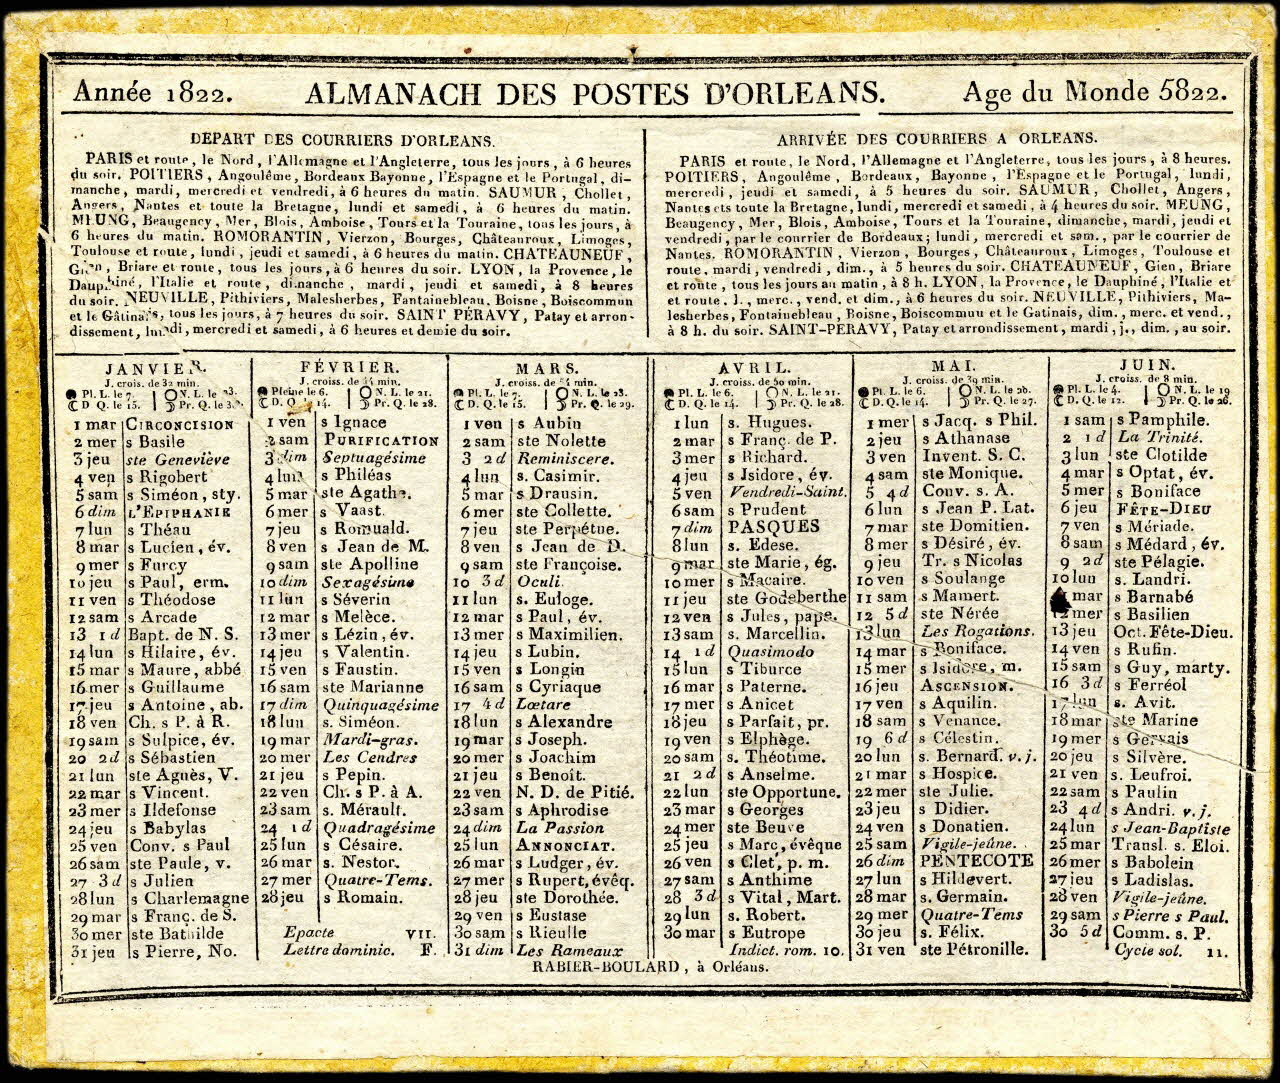 Année 1822.
ALMANACH DES POSTES D'ORLEANS.
Age du Monde 5822.
DEPART DES COURRIERS D'ORLEANS.
PARIS et route, le Nord, l'Allemagne et l'Angleterre, tous les jours, à 6 heures
du soir. POITIERS, Angoulême, Bordeaux Bayonne, l'Espagne et le Portugal, di-
manche, mardi, mercredi et vendredi, à 6 heures du matin. SAUMUR, Chollet,
Angers, Nantes et toute la Bretagne, lundi et samedi, à 6 heures du matin.
MEUNG, Beaugency, Mer, Blois, Amboise, Tours et la Touraine, tous les jours, à
6 heures du matin. ROMORANTIN, Vierzon, Bourges, Châteauroux, Limoges,
Toulouse et route, lundi, jeudi et samedi, à 6 heures du matin. CHATEAUNEUF,
Gien, Briare et route, tous les jours, à 6 heures du soir. LYON, la Provence, le
Dauphiné, l'Italie et route, dimanche, mardi, jeudi et samedi, à 8 heures
du soir. NEUVILLE, Pithiviers, Malesherbes, Fantainebleau, Boisne, Boiscommun
et le Gâtinais, tous les jours, à 7 heures du soir. SAINT PÉRAVY, Patay et arron-
dissement, lundi, mercredi et samedi, à 6 heures et demie du soir.
ARRIVÉE DES COURRIERS A ORLEANS.
PARIS et route, le Nord, l'Allemagne et l'Angleterre, tous les jours, à 8 heures.
POITIERS, Angoulême, Bordeaux, Bayonne, l'Espagne et le Portugal, lundi,
mercredi, jeudi et samedi, à 5 heures du soir. SAUMUR, Chollet, Angers,
Nantes ets toute la Bretagne, lundi, mercredi et samedi, à 4 heures du soir. MEUNG,
Beaugency, Mer, Blois, Amboise, Tours et la Touraine, dimanche, mardi, jeudi et
vendredi, par le courrier de Bordeaux; lundi, mercredi et sam., par le courrier de
Nantes. ROMORANTIN, Vierzon, Bourges, Châteauroux, Limoges, Toulouse et
route, mardi, vendredi, dim., à 5 heures du soir. CHATEAUNEUF, Gien, Briare
et route, tous les jours au matin, à 8 h. LYON, la Provence, le Dauphiné, l'Italie et
et route. l., merc., vend. et dim., à 6 heures du soir. NEUVILLE, Pithiviers, Ma-
lesherbes, Fontainebleau, Boisne, Boiscommuu et le Gatinais, dim., merc. et vend.,
à 8 h. du soir. SAINT-PERAVY, Patay et arrondissement, mardi, j., dim., au soir.
JANVIER.
J. crois. de 32 min.
Pl. L. le 7. N. L. le 23.
D. Q. le 15. Pr. Q. le
1 mar CIRCONCISION
2 mer s Basile
3 jeu ste Geneviève
4 ven s Rigobert
5 sam s Siméon, sty.
6 dim L'EPIPHANIE
7 lun s Théau
8 mar s Lucien, év.
9 mer s Furcy
10 jeu s Paul, erm.
11 ven s Théodose
12 sam s Arcade
13 1 d Bapt. de N. S.
14 lun s Hilaire, év.
15 mar s Maure, abbé
16 mer s Guillaume
17 jeu s Antoine, ab.
18 ven Ch. s P. à R.
19 sam s Sulpice, év.
20 2 d s Sébastien
21 lun ste Agnès, V.
22 mar s Vincent.
23 mer s Ildefonse
24 jeu s Babylas
25 ven Conv. s Paul
26 sam ste Paule, v.
27 3 d s Julien
28 lun s Charlemagne
29 mar s Franç. de S.
30 mer ste Bathilde
31 jeu s Pierre, No.
FÉVRIER.
J. croiss. de 44 min.
Pleine le 6. N. L. le 21.
D. Q. 14. Pr. Q. le 28.
1 ven s Ignace
2 sam PURIFICATION
3 dim Septuagésime
4 lun s Philéas
5 mar ste Agathe.
6 mer s Vaast.
7 jeu s Romuald.
8 ven s Jean de M.
9 sam ste Apolline
10 dim Sexagésime
11 lun s Séverin
12 mar s Melèce.
13 mer s Lézin, év.
14 jeu s Valentin.
15 ven s Faustin.
16 sam ste Marianne
17 dim Quinquagésime
18 lun s. Siméon.
19 mar Mardi-gras.
20 mer Les Cendres
21 jeu s Pepin.
22 ven Ch. s P. à A.
23 sam s. Mérault.
24 1 d Quadragésime
25 lun s Césaire.
26 mar s. Nestor.
27 mer Quatre-Tems.
28 jeu s Romain.
Epacte VII.
Lettre dominic. F.
MARS.
J. croiss. de 54 min.
Pl. L. le 7. N. L. le 23.
D. Q. le 15. Pr. Q. le 29.
1 ven s Aubin
2 sam ste Nolette
3 2 d Reminiscere.
4 lun s. Casimir.
5 mar s Drausin.
6 mer ste Collette.
7 jeu ste Perpétue.
8 ven s Jean de D.
9 sam ste Françoise.
10 3 d Oculi.
11 lun s. Euloge.
12 mar s Paul, év.
13 mer s Maximilien.
14 jeu s Lubin.
15 ven s Longin
16 sam s Cyriaque
17 4 d Lœtare
18 lun s Alexandre
19 mar s Joseph.
20 mer s Joachim
21 jeu s Benoît.
22 ven N. D. de Pitié.
23 sam s Aphrodise
24 dim La Passion
25 lun ANNONCIAT.
26 mar s Ludger, év.
27 mer s Rupert, évêq.
28 jeu ste Dorothée.
29 ven s Eustase
30 sam s Rieulle
31 dim Les Rameaux
AVRIL.
J. croiss. de 50 min.
Pl. L. le 6. N. L. le 21.
D. Q. le 14. Pr. Q. le 28.
1 lun s. Hugues.
2 mar s Franç. de P.
3 mer s Richard.
4 jeu s Isidore, év.
5 ven Vendredi-Saint.
6 sam s Prudent
7 dim PASQUES
8 lun s. Edese.
9 mar ste Marie, ég.
10 mer s Macaire.
11 jeu ste Godeberthe
12 ven s Jules, pape.
13 sam s. Marcellin.
14 1 d Quasimodo
15 lun s Tiburce
16 mar s Paterne.
17 mer s Anicet
18 jeu s Parfait, pr.
19 ven s Elphège.
20 sam s. Théotime.
21 2 d s Anselme.
22 lun ste Opportune.
23 mar s Georges
24 mer ste Beuve
25 jeu s Marc, évêque
26 ven s Clet, p. m.
27 sam s Anthime
28 3 d s Vital, Mart.
29 lun s. Robert.
30 mar s Eutrope
Indict. rom. 10.
MAI.
J. croiss. de 39 min.
Pl. L. le 6. N. L. le 20.
D. Q. le 14. Pr. Q. le 27.
1 mer s Jacq. s Phil.
2 jeu s Athanase
3 ven Invent. S. C.
4 sam ste Monique.
5 4 d Conv. s. A.
6 lun s Jean P. Lat.
7 mar ste Domitien.
8 mer s Désiré, év.
9 jeu Tr. s Nicolas
10 ven s Soulange
11 sam s Mamert.
12 5 d ste Nérée
13 lun Les Rogations.
14 mar s Boniface.
15 mer s Isidore, m.
16 jeu ASCENSION.
17 ven s Aquilin.
18 sam s Venance.
19 6 d s Célestin.
20 lun s. Bernard. v. j.
21 mar s Hospice.
22 mer ste Julie.
23 jeu s Didier.
24 ven s Donatien.
25 sam Vigile-jeûne.
26 dim PENTECOTE
27 lun s Hildevert.
28 mar s. Germain.
29 mer Quatre-Tems
30 jeu s. Félix.
31 ven ste Pétronille.
JUIN.
J. croiss. de 8 min.
Pl. L. le 4. N. L. le 19
D. Q. le 12. Pr. Q. le 26.
1 sam s Pamphile.
2 1 d La Trinité.
3 lun ste Clotilde
4 mar s Optat, év.
5 mer s Boniface
6 jeu FÊTE-DIEU
7 ven s Mériade.
8 sam s Médard, év.
9 2 d ste Pélagie.
10 lun s. Landri.
mar s Barnabé
12 mer s Basilien
13 jeu Oct. Fête-Dieu.
14 ven s Rufin.
15 sam s Guy, marty.
16 3 d s Ferréol
17 lun s. Avit.
18 mar ste Marine
19 mer s Gervais
20 jeu s Silvère.
21 ven s. Leufroi.
22 sam s Paulin
23 4 d s Andri. v. j.
24 lun s Jean-Baptiste
25 mar Transl. s. Eloi.
26 mer s Babolein
27 jeu s Ladislas.
28 ven Vigile-jeûne.
29 sam s Pierre s Paul.
30 5 d Comm. s. P.
Cycle sol. 11.
RABIER-BOULARD, à Orléans.